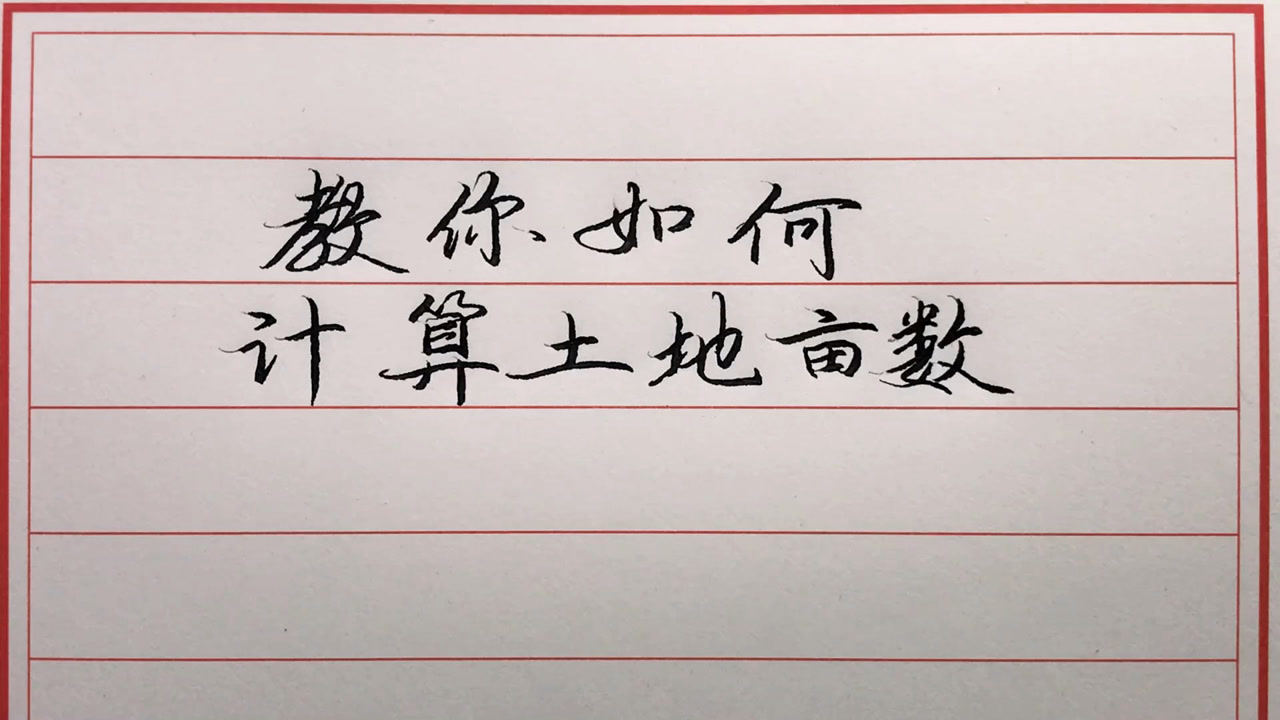 教你如何
计算土地亩数